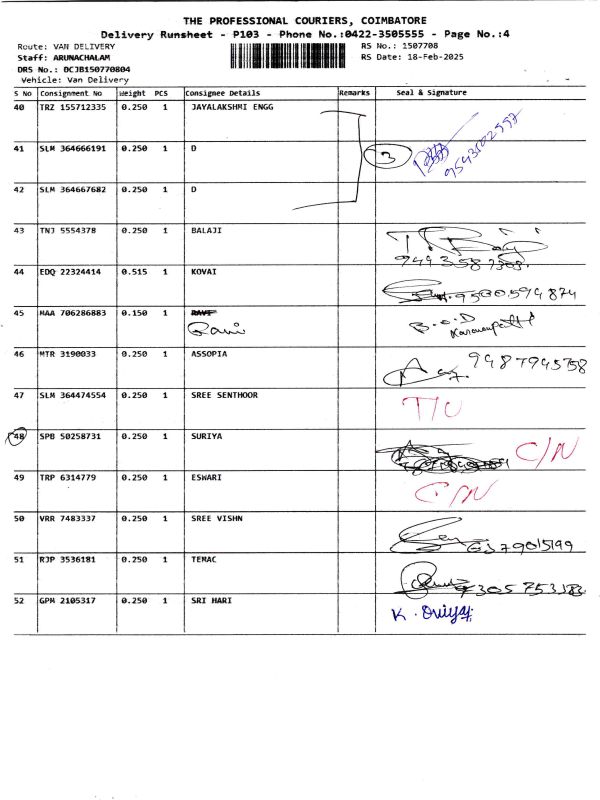 THE PROFESSIONAL COURIERS, COIMBATORE
Delivery Runsheet - P103 - Phone No.:0422-3505555 - Page No.:4
Route: VAN DELIVERY RS No.: 1507708
Staff: ARUNACHALAM RS Date: 18-Feb-2025
DRS No.: OCJB150770804
Vehicle: Van Delivery
S No Consignment No Weight PCS Consignee Details Remarks Seal & Signature
40 TRZ 155712335 0.250 1 JAYALAKSHMI ENGG
41 SLM 364666191 0.250 1 D 3
42 SLM 364667682 0.250 1 D
43 TNJ 5554378 0.250 1 BALAJI
44 EDQ 22324414 0.515 1 KOVAI 9500594874
45 MAA 706286883 0.150 1 RAVI B.O.D
Ravi
46 MTR 3190033 0.250 1 ASSOPIA 9487945758
47 SLM 364474554 1 0.250 SREE SENTHOOR T/U
48 SPB 50258731 0.250 1 SURIYA C/N
49 TRP 6314779 0.250 1 ESWARI C/N
50 VRR 7483337 0.250 1 SREE VISHN 6379015199
51 RJP 3536181 0.250 1 TEMAC
52 GPM 2105317 0.250 1 SRI HARI K. Oviya